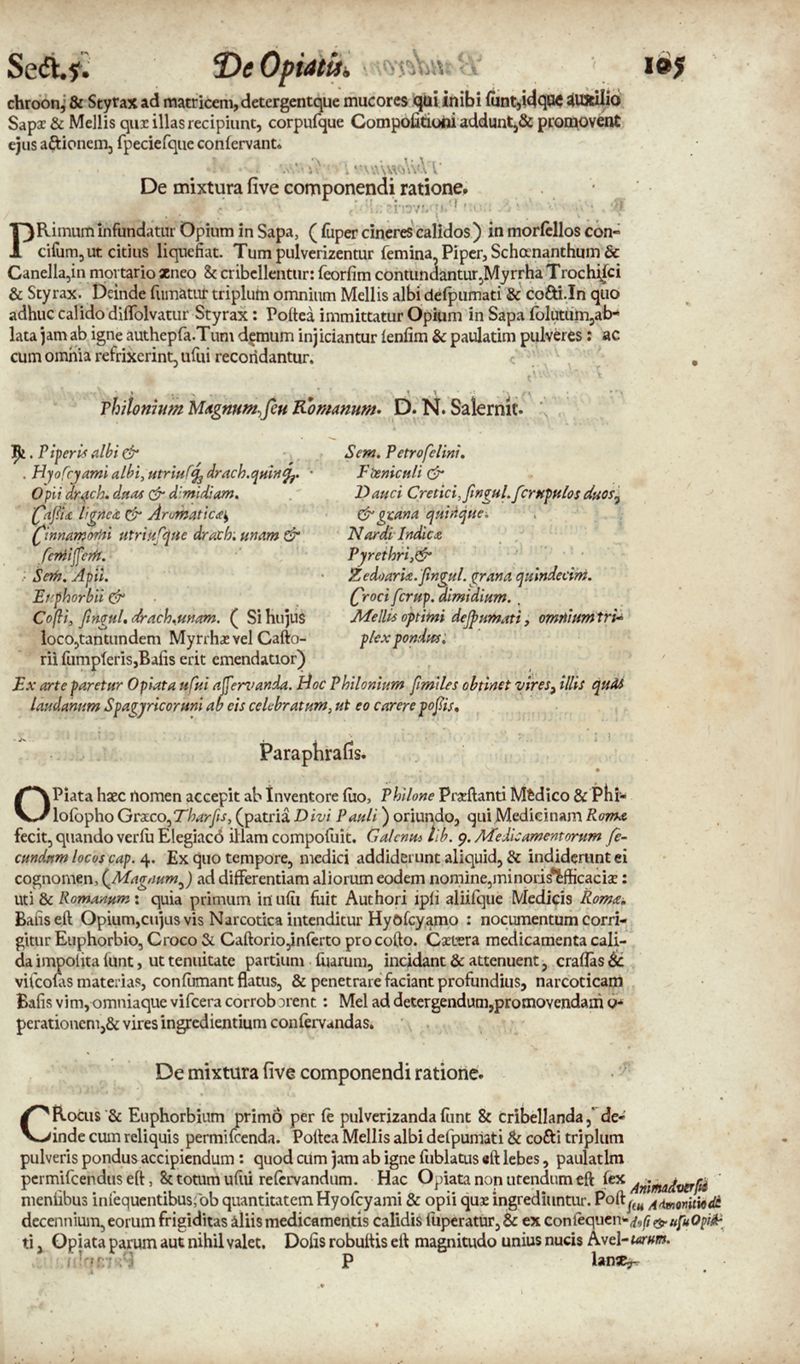 Sect.5. De Opiatis. 105
chroon, & Styrax ad matricem, detergentque mucores qui inibi sunt, idque auxilio
Sapæ & Mellis quæ illas recipiunt, corpusque Compositioni addunt, & promovent
ejus actionem, speciesque conservant.
De mixtura sive componendi ratione.
PRimum infundatur Opium in Sapa, (super cineres calidos) in morsellos con-
cisum, ut citius liquefiat. Tum pulverizentur semina, Piper, Schœnanthum &
Canella, in mortario æneo & cribellentur: seorsim contundantur, Myrrha Trochisci
& Styrax. Deinde sumatur triplum omnium Mellis albi despumati & cocti. In quo
adhuc calido dissolvatur Styrax: Posteà immittatur Opium in Sapa solutum, ab-
lata jam ab igne authepsa. Tum demum injiciantur sensim & paulatim pulveres: ac
cum omnia refrixerint, usui recondantur.
Philonium Magnum, seu Romanum. D. N. Salernit.
℞. Piperis albi &
Hyoscyami albi, utriusq; drach. quinq;.
Opii drach. duas & dimidiam.
Cassiæ ligneæ & Aromaticæ,
Cinnamomi utriusque drach. unam &
semissem.
Sem. Apii.
Euphorbii &
Costi, singul. drach. unam. (Si hujus
loco, tantundem Myrrhæ vel Casto-
rii sumpseris, Basis erit emendatior)
Sem. Petroselini.
Fœniculi &
Dauci Cretici, singul. scrupulos duos,
& grana quinque.
Nardi Indicæ
Pyrethri, &
Zedoariæ. singul. grana quindecim.
Croci scrup. dimidium.
Mellis optimi despumati, omnium tri-
plex pondus.
Ex arte paretur Opiata usui asservanda. Hoc Philonium similes obtinet vires, illis quas
laudanum Spagyricorum ab eis celebratum, ut eo carere possis.
Paraphrasis.
OPiata hæc nomen accepit ab Inventore suo, Philone Præstanti Medico & Phi-
losopho Græco, Tharsis, (patriâ Divi Pauli) oriundo, qui Medicinam Romæ
fecit, quando versu Elegiacó illam composuit. Galenus lib. 9. Medicamentorum se-
cundum locos cap. 4. Ex quo tempore, medici addiderunt aliquid, & indiderunt ei
cognomen, (Magnum,) ad differentiam aliorum eodem nomine, minoris efficaciæ:
uti & Romanum: quia primum in usu fuit Authori ipsi aliisque Medicis Romæ.
Basis est Opium, cujus vis Narcotica intenditur Hyoscyamo: nocumentum corri-
gitur Euphorbio, Croco & Castorio, inserto pro costo. Cætera medicamenta cali-
da imposita sunt, ut tenuitate partium suarum, incidant & attenuent, crassas &
viscosas materias, consumant flatus, & penetrare faciant profundius, narcoticam
Basis vim, omniaque viscera corroborent: Mel ad detergendum, promovendam o-
perationem, & vires ingredientium conservandas.
De mixtura sive componendi ratione.
CRocus & Euphorbium primò per se pulverizanda sunt & cribellanda, de-
inde cum reliquis permiscenda. Postea Mellis albi despumati & cocti triplum
pulveris pondus accipiendum: quod cùm jam ab igne sublatus est lebes, paulatim
permiscendus est, & totum usui reservandum. Hac Opiata non utendum est sex
mensibus insequentibus, ob quantitatem Hyoscyami & opii quæ ingrediuntur. Post
decennium, eorum frigiditas àliis medicamentis calidis superatur, & ex consequen-
ti, Opiata parum aut nihil valet. Dosis robustis est magnitudo unius nucis Avel-
Animadversio
seu Admonitio de
dosi & usu Opia-
tarum.
P lanæ,